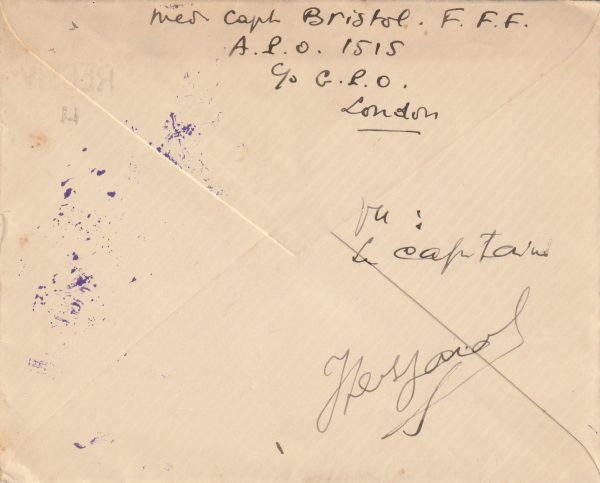 Med Capt Bristol. F.F.F.
A.P.O. 1515
c/o G.P.O.
London
Vu :
Le capitaine